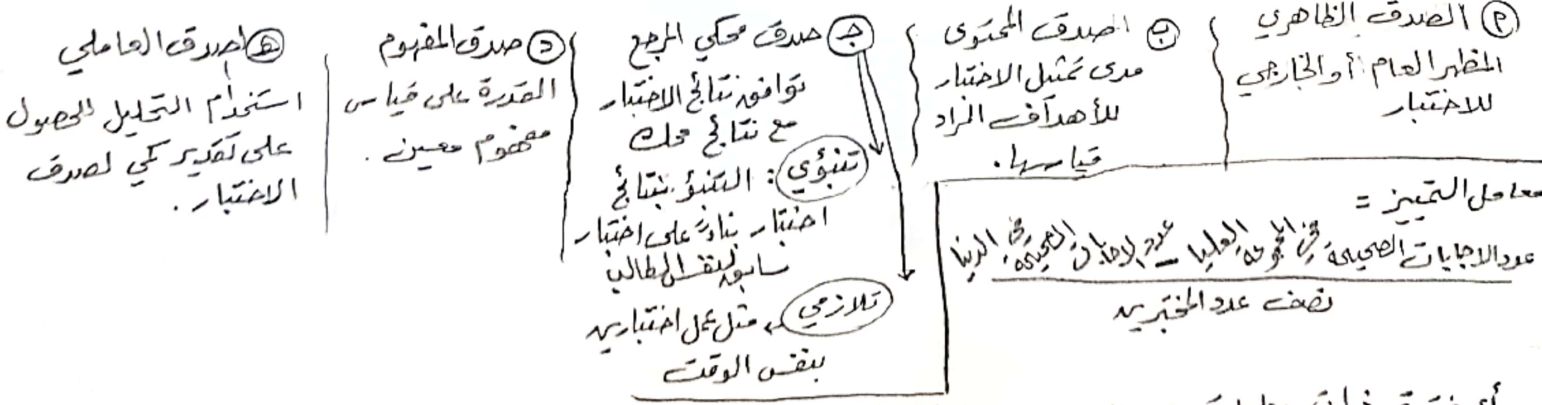 أ الصدق الظاهري
المظهر العام أو الخارجي
للاختبار
ب الصدق المحتوى
مدى تمثيل الاختبار
للأهداف المراد
قياسها.
جـ صدق محكي المرجع
توافق نتائج الاختبار
مع نتائج محك
تنبؤي : التنبؤ بنتائج
اختبار بناءً على اختبار
سابق لنفس الطالب
تلازمي مثل عمل اختبارين
بنفس الوقت
د صدق المفهوم
القدرة على قياس
مفهوم معين.
هـ الصدق العاملي
استخدام التحليل للحصول
على تقدير كمي لصدق
الاختبار.
معامل التمييز =
عدد الاجابات الصحيحة في المجموعة العليا - عدد الاجابات الصحيحة في الدنيا
نصف عدد المختبرين